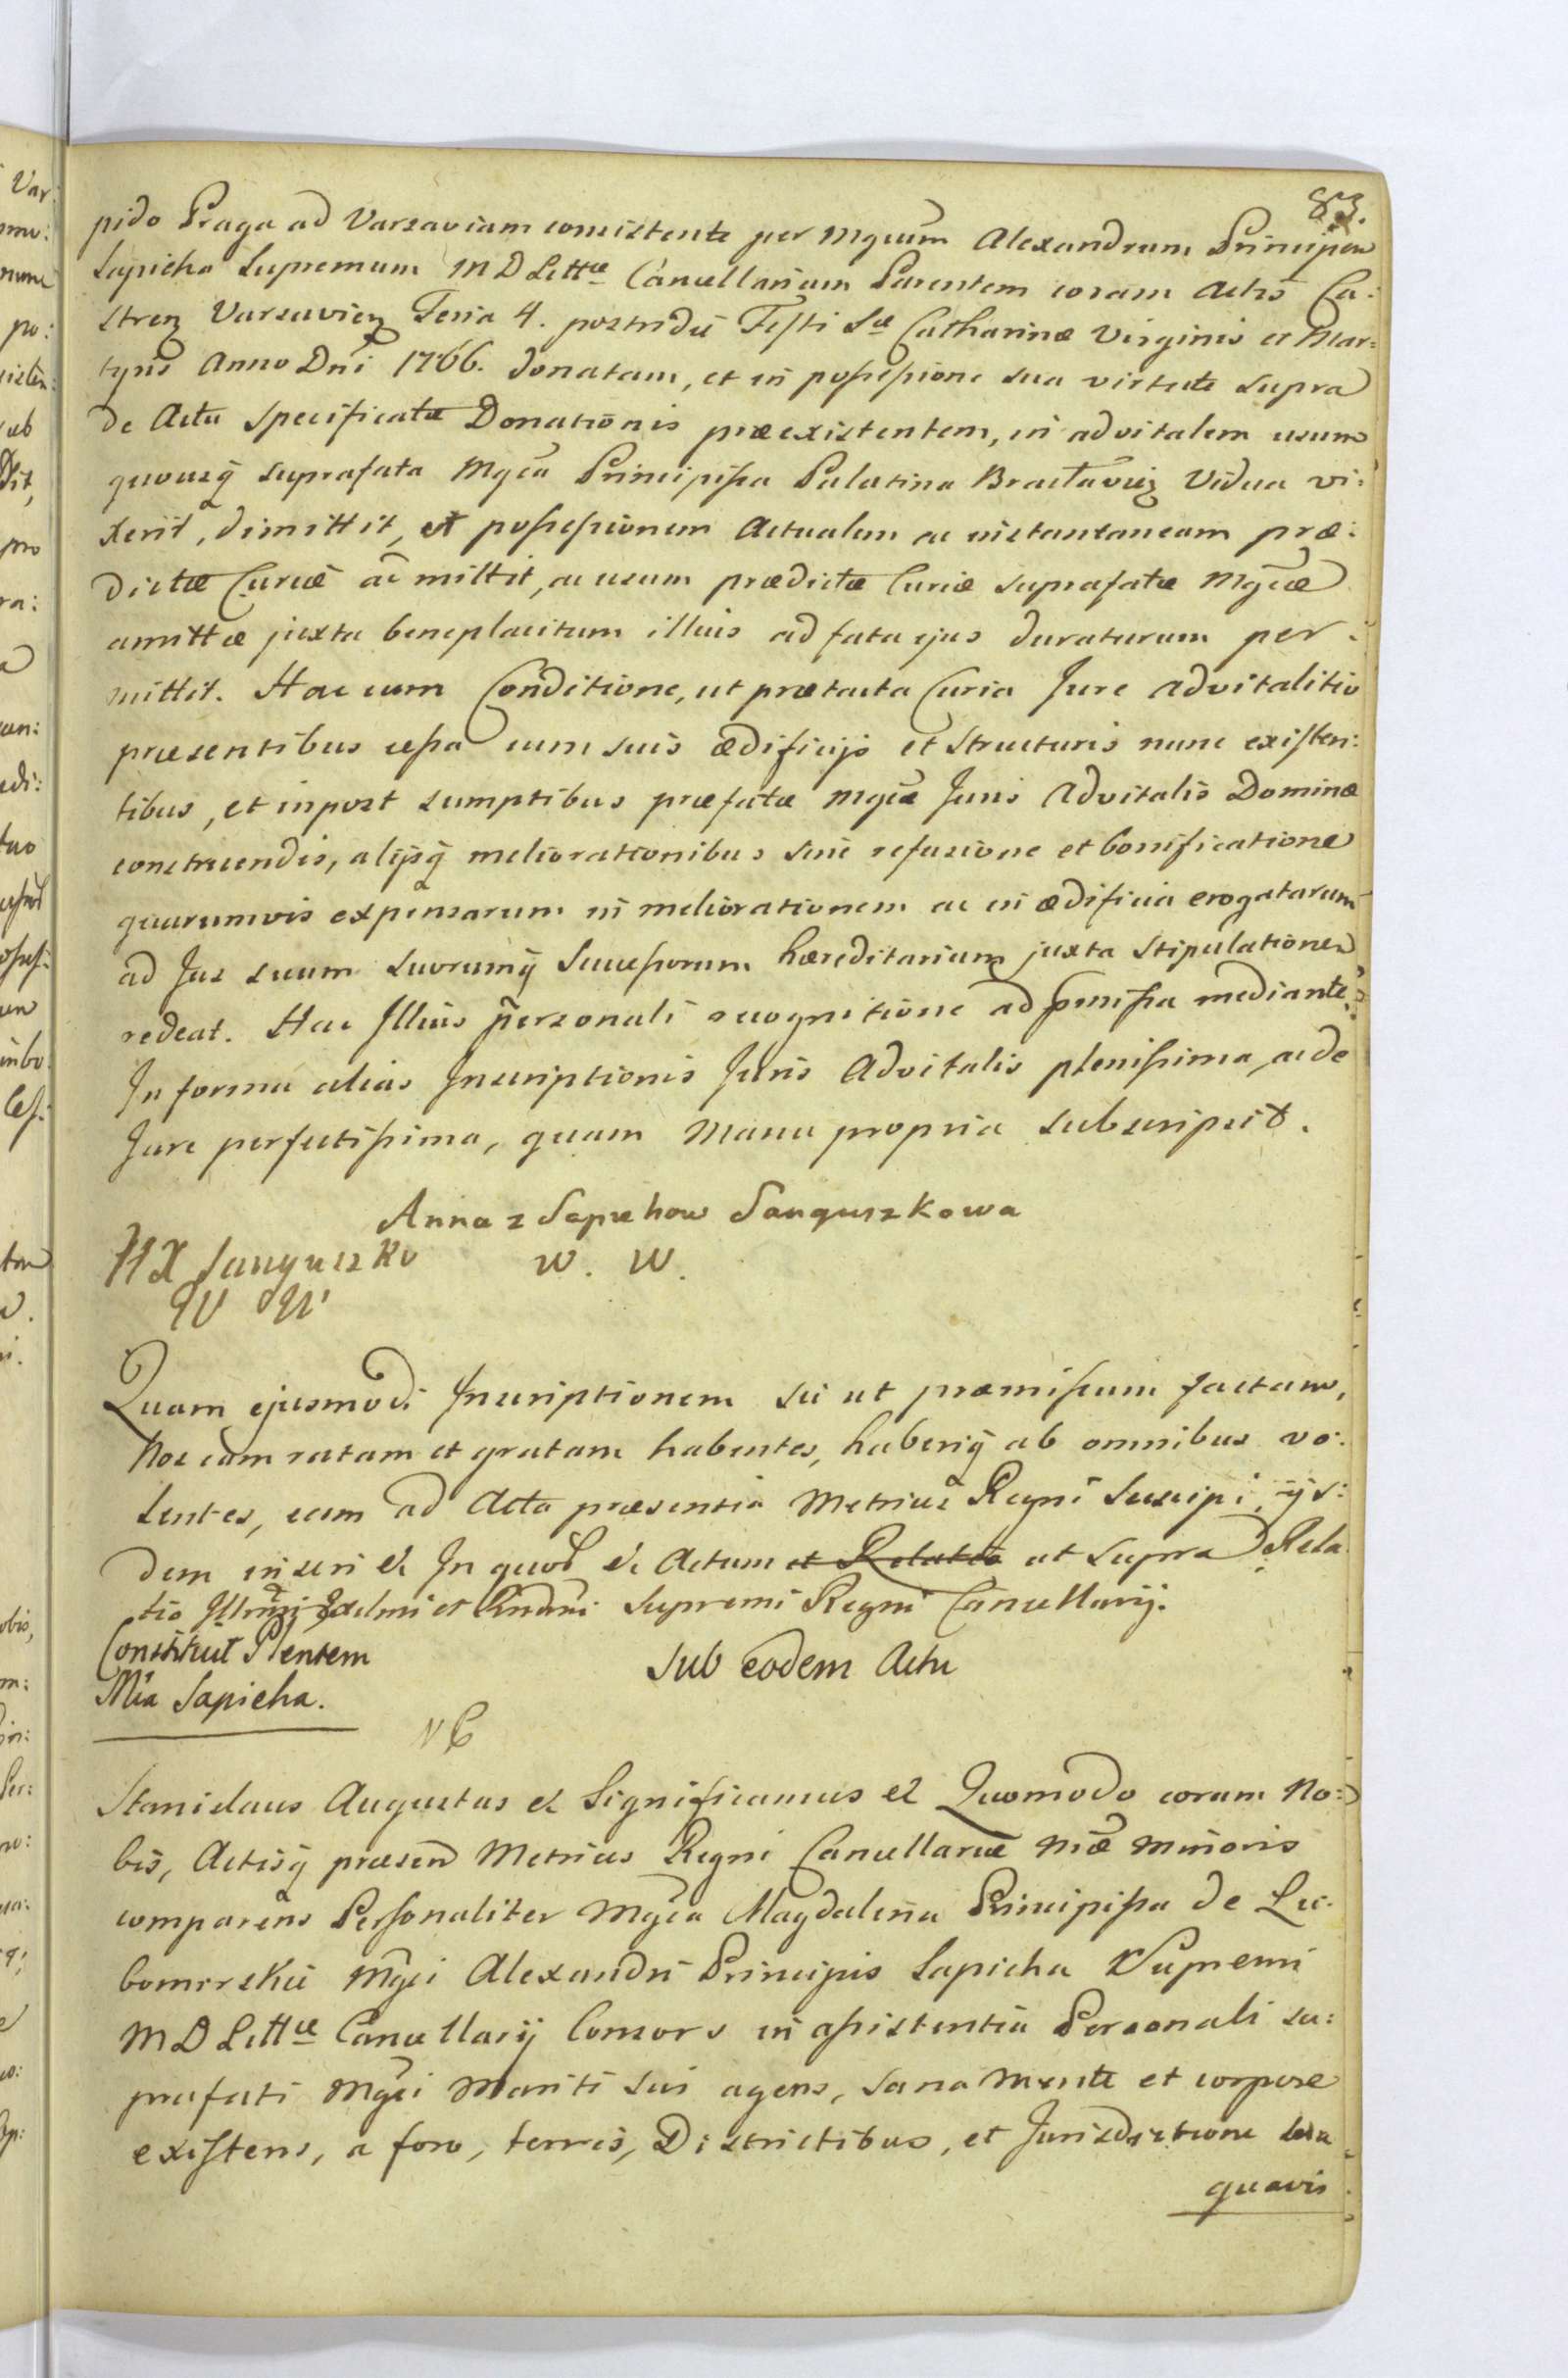 83.
pido Praga ad Varsaviam consistente per Mgcum Alexandrum Principem
Sapieha Supremum M D Littæ Cancellarium Parentem coram Actis Ca:
stren Varsavien Feria 4. postridie Festi Sæ Catharinæ Virginis et Mar=
tyris Anno Dni 1766. donatam, et in possessione sua virtute supra
de Actu specificatæ Donationis præexistentem, in advitalem usum
quousq suprafata Mgca Principissa Palatina Braclavien Vidua vi:
xerit, dimittit, et possessionem Actualem ac instantaneam præ:
dictæ Curiæ admittit, ac usum prædictæ Curiæ suprafatæ Mgcæ
amittæ juxta beneplacitum illius ad fata ejus duraturum per:
mittit. Hac cum Conditione, ut prætacta Curia Jure advitalitio
præsentibus cessa cum suis ædificijs et structuris nunc existen:
tibus, et inpost sumptibus præfatæ Mgcæ Juris Advitalis Dominæ
construendis, alijsq meliorationibus sine refusione et bonificatione
quarumvis expensarum in meliorationem ac in ædificia erogatarum
ad Jus suum suorumq Successorum hæreditarium juxta stipulationem
redeat. Hac Illius personali recognitione ad præmissa mediante.
In forma alias Inscriptionis Juris Advitalis plenissima, ac de
Jure perfectissima, quam Manu propria subscripsit.
Anna z Sapiehow Sanguszkowa
HX Sanguszko W. W.
W W
Quam ejusmodi Inscriptionem sic ut præmissum factam,
Nos eam ratam et gratam habentes, haberiq ab omnibus vo:
lentes, eam ad Acta præsentia Metrices Regni suscipi, ijs:
dem inseri & In quod & Actum et Relatio ut supra Rela
tio Illmi Exelmi et Rndmi Supremi Regni Cancellarij.
Constituit Plentem
Mia Sapieha.
Sub eodem Actu
Stanislaus Augustus & Significamus & Quomodo coram No:
bis, Actisq præsen Metrices Regni Cancellariæ Næ Minoris
comparens Personaliter Mgca Magdalena Principissa de Lu:
bomirskie Mgci Alexandri Principis Sapieha Supremi
M D Littæ Cancellarij Consors in assistentia Personali su:
prafati Mgci Mariti sui agens, sana Mente et corpore
existens, a foro, terris, Districtibus, et Jurisdictione sua
quavis